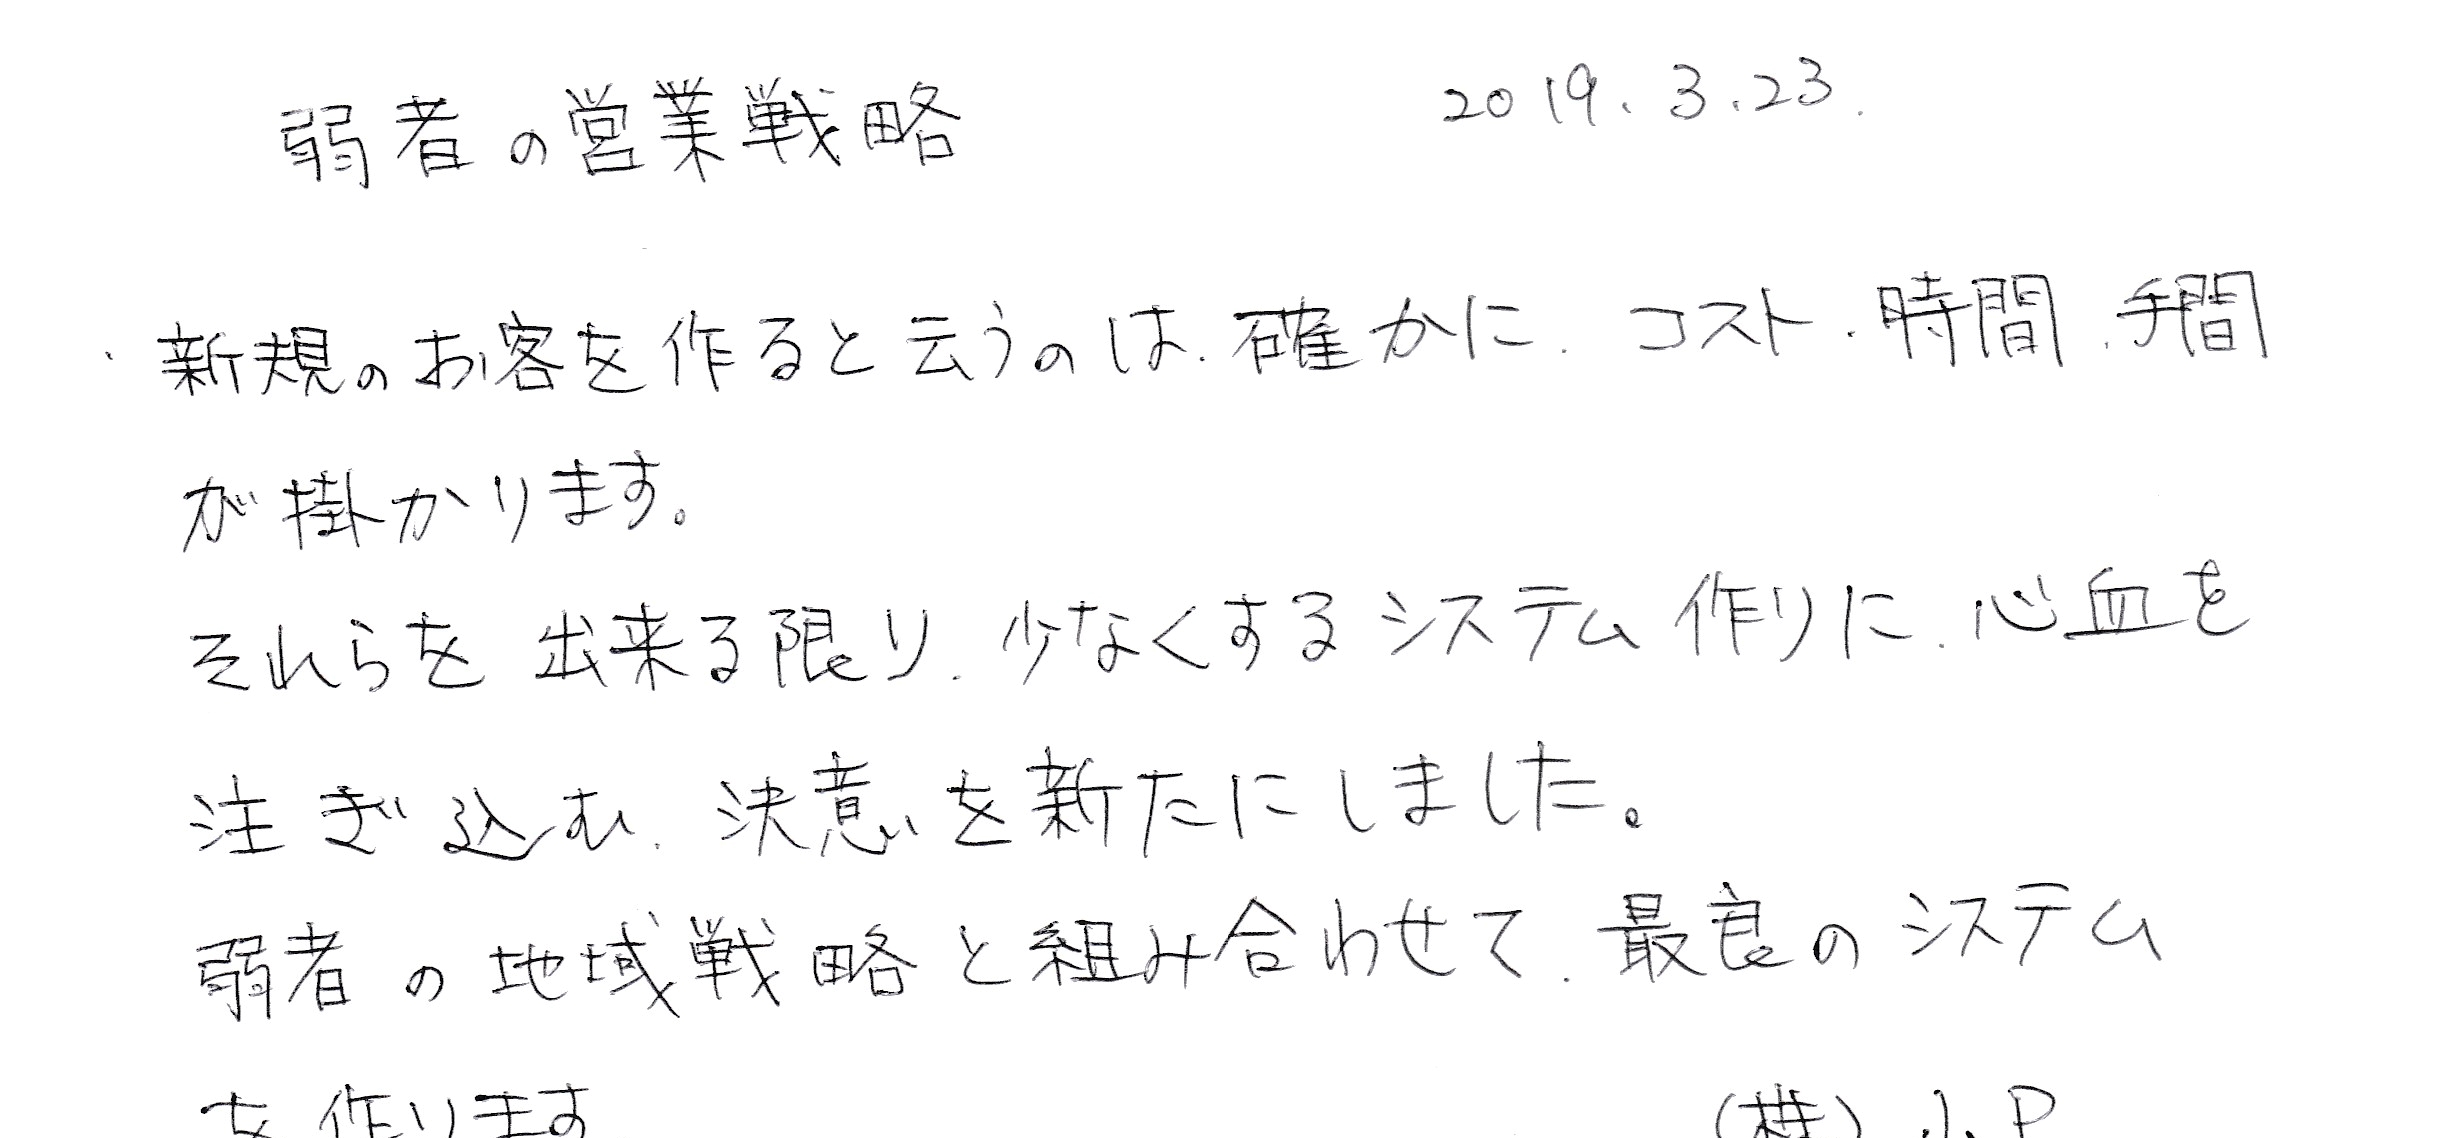 弱者の営業戦略 2019.3.23.
・新規のお客を作ると云うのは、確かに、コスト、時間、手間
が掛かります。
それらを出来る限り、少なくするシステム作りに、心血を
注ぎ込む、決意を新たにしました。
弱者の地域戦略と組み合わせて、最良のシステム
を作ります (株)